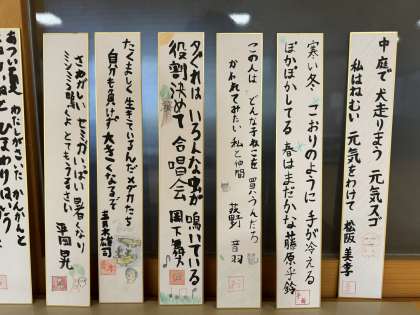 中庭で 犬走りまう 元気スゴ
私はねむい 元気をわけて 松阪 美李
寒い冬 こおりのように 手が冷える
ぽかぽかしてる 春はまだかな 藤原 乎鈴
この人は どんな子ねこを 買うんだろ
かわれてみたい 私と仲間 荻野 音羽
夕ぐれは いろんな虫が 鳴いている
役割決めて 合唱会 岡下
たくましく 生きているんだ メダカたち
自分も負けず 大きくなるぞ 青井 雄司
さわがしい セミがいっぱい 暑くなり
ミンミン鳴いて とてもうるさい 平岡 晃
あつい夏 わたしがさいた かんかんと
ひまわり